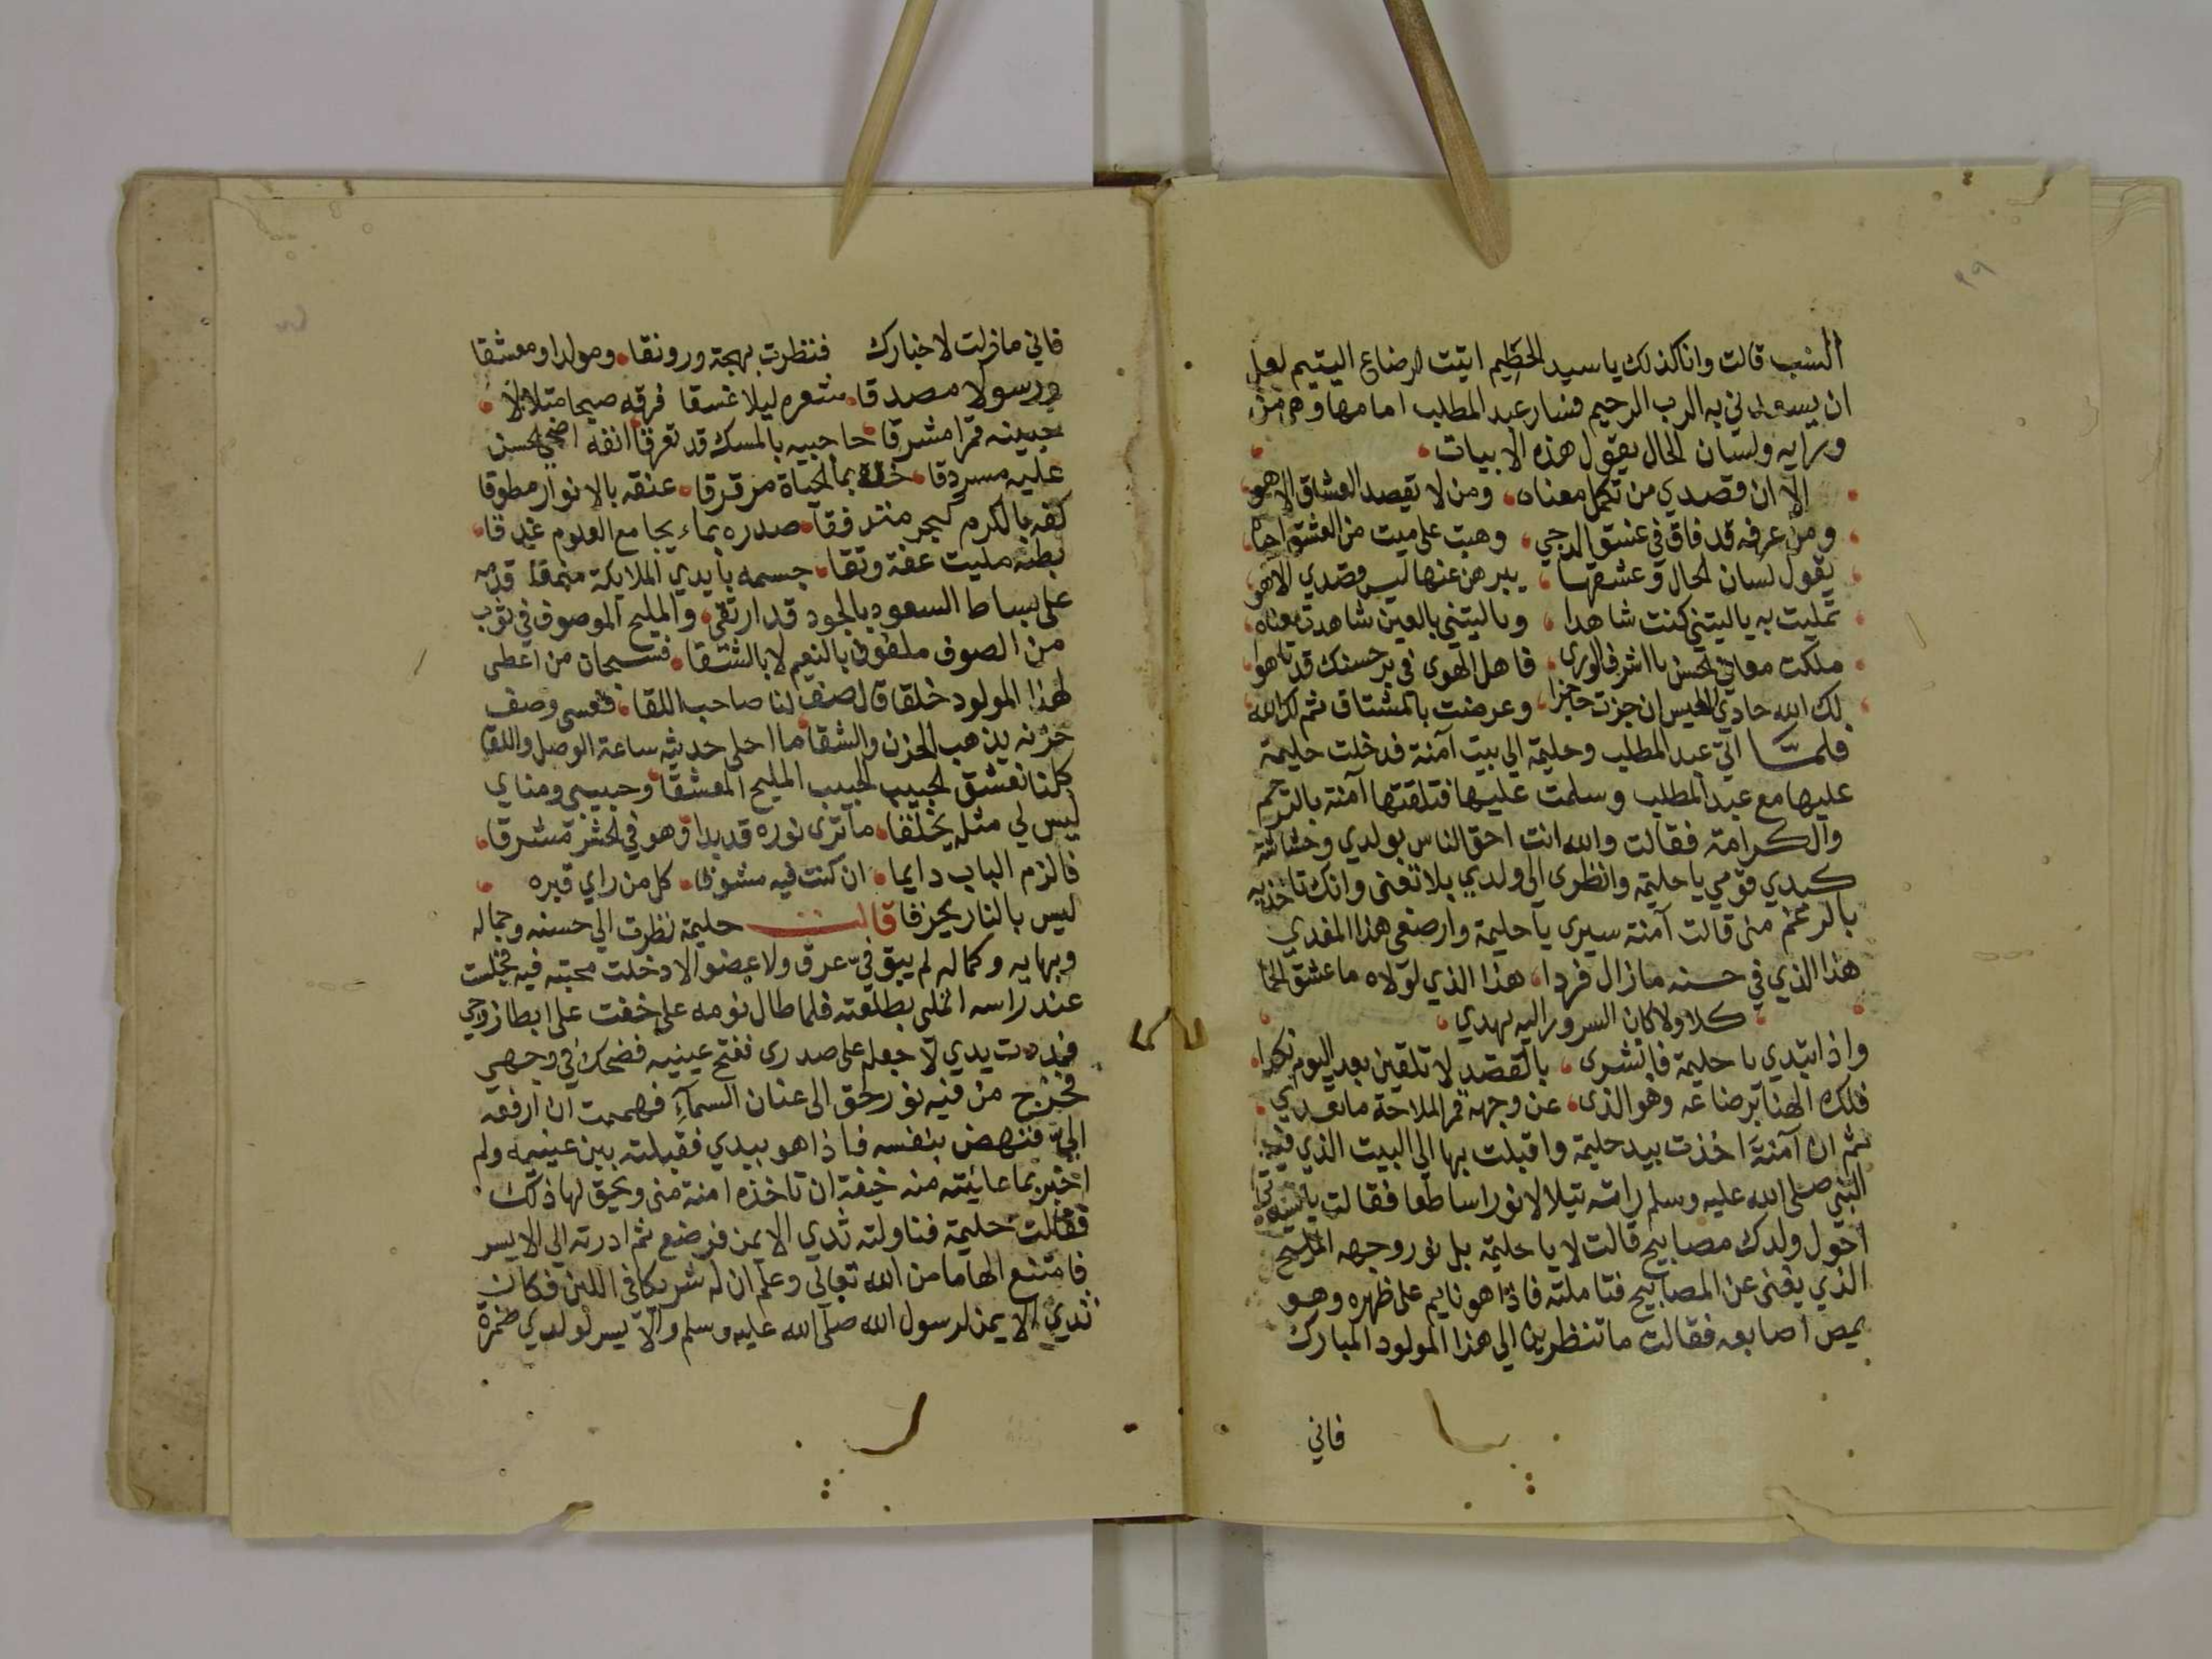 ٢٩
النسب قالت وانا كذلك يا سيد الحطيم اتيت لارضاع اليتيم لعل
ان يسعدني به الرب الرحيم فسار عبد المطلب امامها وهي من
ورايه ولسان الحال يقول هذه الابيات
الا ان قصدي من تكمل معناه ومن لا تقصد العشاق الا هو
ومن عرفه قد فاق في غسق الدجي وهبت على ميت من العشق احياه
يقول لسان الحال وعشقها يبرهن عنها ليس قصدي الا هو
تمليت به ياليتني كنت شاهدا وياليتني بالعين شاهدت معناه
ملكت معاني الحسن يا اشرف الورى فاهل الهوى في بر حسنك قد تاهوا
لك الله حادي العيس ان جزت حاجزا وعرضت بالمشتاق ثم لك الله
فلما اتي عبد المطلب وحليمة الي بيت آمنة فدخلت حليمة
عليها مع عبد المطلب وسلمت عليها فتلقتها آمنة بالترحيم
والكرامة فقالت والله انت احق الناس بولدي وحشاشة
كبدي قومي يا حليمة وانظري الي ولدي بلا تغنى وانك تاخذيه
بالرغم منى قالت آمنة سيرى يا حليمة وارضعي هذا المفدي
هذا الذي في حسنه مازال فردا هذا الذي لولاه ما عشق الحما
كلا ولا كان السرور اليه يهدي
واذا ابتدي يا حليمة فابشرى بالقصد لا تلقين بعد اليوم نكدا
فلك الهنا برضاعه وهو الذى عن وجهه قمر الملاحة ما تعدي
ثم ان آمنة اخذت بيد حليمة واقبلت بها الي البيت الذي فيه
النبي صلى الله عليه وسلم راته يتيلالا نورا ساطعا فقالت يا ستي
احول ولدك مصابيح قالت لا يا حليمة بل نور وجهه المليح
الذي يغنى عن المصابيح فتاملته فاذا هو نايم على ظهره وهو
يمص اصابعه فقالت ما تنظرين الي هذا المولود المبارك
فاني
فاني مازلت لاخبارك فنظرت بهجة ورونقا ومولدا ومعشقا
ورسولا مصدقا شعره ليلا غسقا فرقه صبحا متلالا
جبينه قمرا مشرقا حاجبيه بالمسك قد تعرقا انفه اضحي الحسن
عليه مسردقا خده بما الحياة مرقرقا عنقه بالانوار مطوقا
كفه بالكرم كبحر متدفقا صدره بماء يجامع العلوم غيدقا
بطنه مليت عفة وتقا جسمه بايدي الملايكة منمقا قدمه
على بساط السعود بالجود قد ارتقي والمليح الموصوف في ثوب
من الصوف ملفوف بالنعيم لا بالشقا فسبحان من اعطى
لهذا المولود خلقا قال صف لنا صاحب اللقا فعسى وصف
حزنه يذهب الحزن والشقا ما احلى حديثه ساعة الوصل واللقا
كلنا نعشق الحبيب الحبيب المليح المعشقا وحبيبي ومناي
ليس لي مثله يخلقا ما ترى نوره قد بدا وهو في الحشر مشرقا
فالزم الباب دايما ان كنت فيه مشوقا كل من راي قبره
ليس بالنار يحرقا قالت حليمة نظرت الي حسنه وجماله
وبهايه وكماله لم يبق في عرق ولا عضو الا دخلت محبته فيه فجلست
عند راسه اتملى بطلعته فلما طال نومه على خفت على ابطا زوجي
فمددت يدي لاجعله على صدرى ففتح عينيه فضحك في وجهي
فخرج من فيه نور لحق الى عنان السماء فهممت ان ارفعه
الي فنهض بنفسه فاذا هو بيدي فقبلته بين عينيه ولم
اخبر بما عاينته منه خيفة ان تاخذه امنة منى ويحق لها ذلك
فقالت حليمة فناولته ثدي الايمن فرضع ثم ادرته الي الايسر
فامتنع الهاما من الله تعالى وعلم ان له شريكا في اللبن فكان
ثدي الايمن لرسول الله صلى الله عليه وسلم والايسر لولدي ضمرة